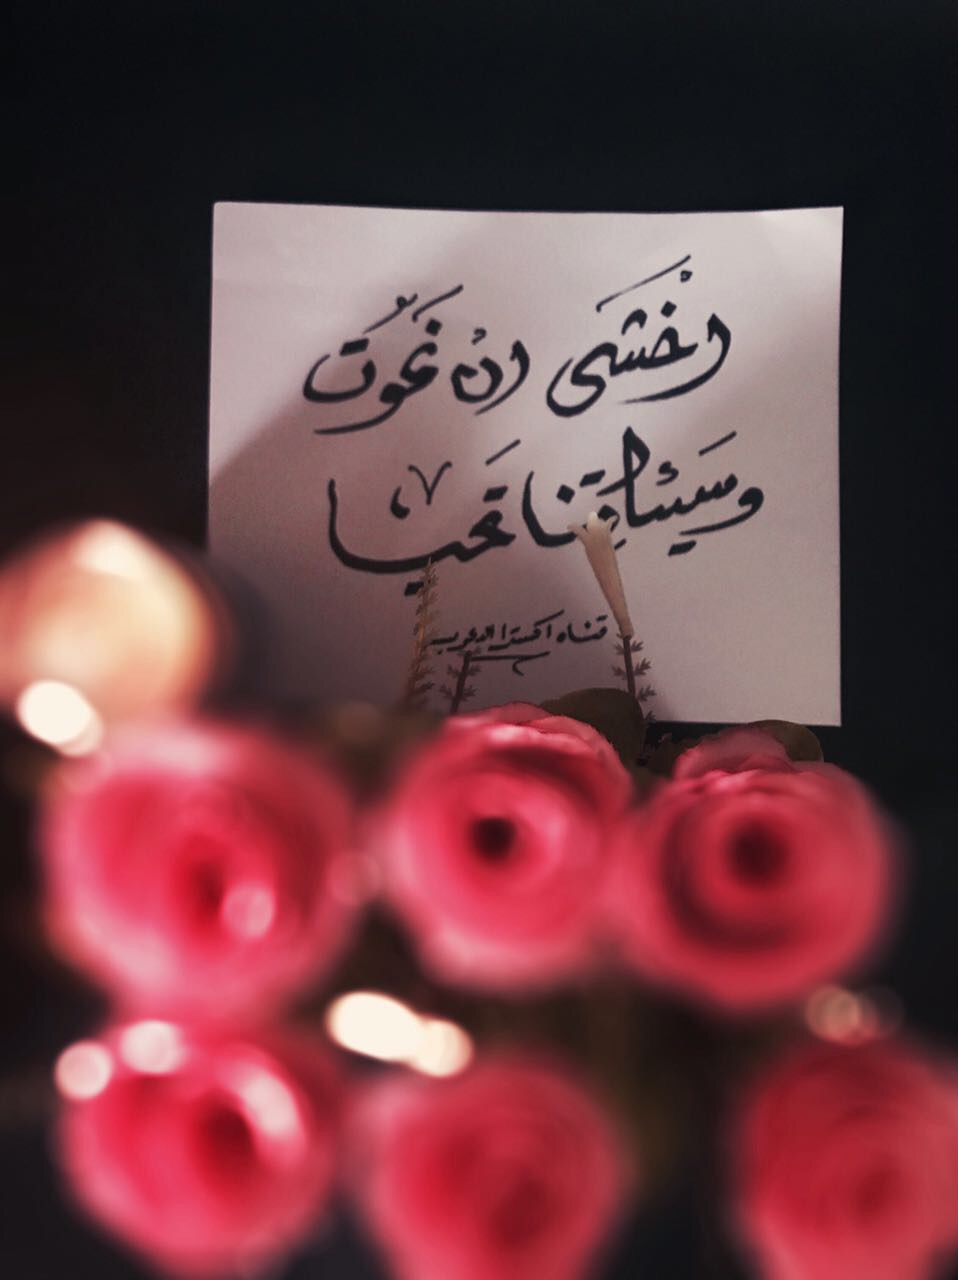 اخْشَى انْ نَمُوُت
وسَيئاتِنا تَحيا
قناه اكسترا العرب